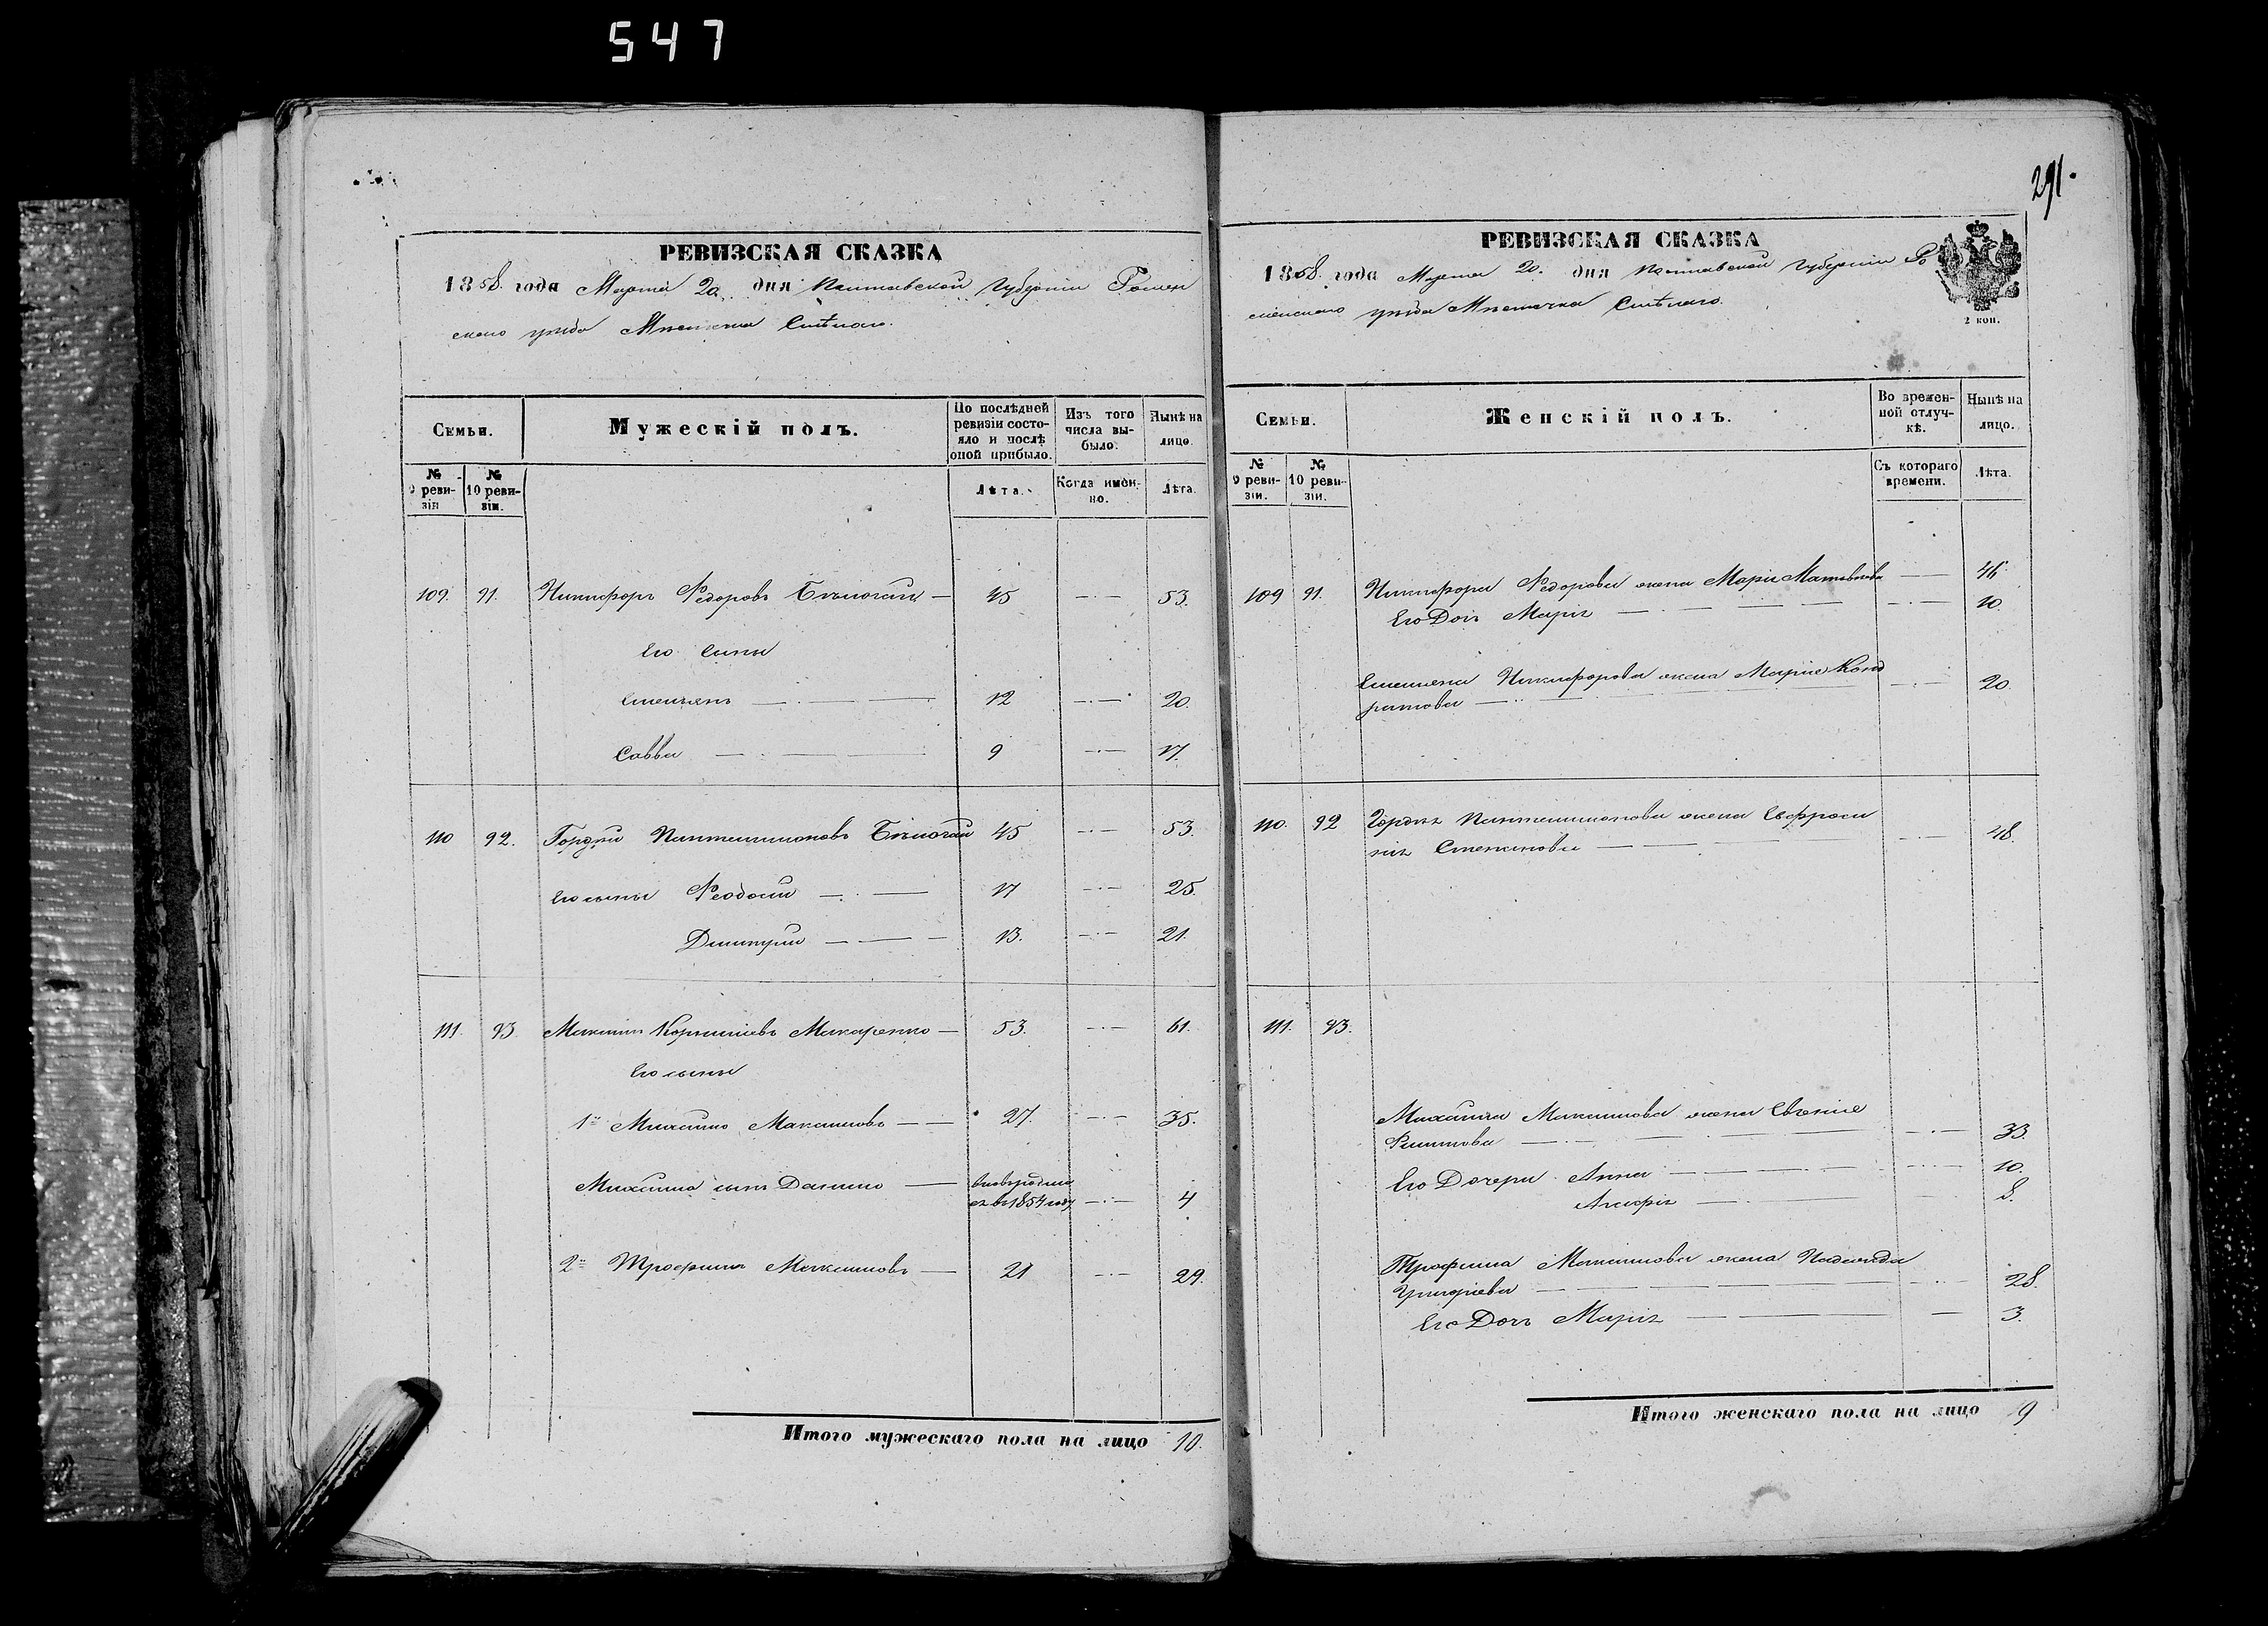 547
РЕВИЗСКАЯ СКАЗКА
1858 года Марта 20 дня Полтавской Губерніи Ромен
скаго уѣзда Мѣстечка Смѣлаго.
Семьи.
Мужескій полъ.
По послѣдней ревизіи состояло и послѣ оной прибыло.
Изъ того числа выбыло.
Нынѣ на лицо.
№ 9 ревизіи
№ 10 ревизіи.
Лѣта.
Когда именно.
Лѣта.
109. 91. Никифоръ Ѳедоровъ 45 53.
Его Сыны
Емельянъ 12 20.
Савва 9 17.
110 92. Гордѣй Пантелимоновъ 45 53.
Его сыны Ѳеодосій 17 25.
Димитрій 13. 21.
111. 93 Максимъ Корниліевъ Макаренко 53. 61.
Его сыны
1й Михайло Максимовъ 27. 35.
Михайла сынъ Данило
вновь родил
ся въ 1854 году 4
2й Трофимъ Максимовъ 21 29.
Итого мужескаго пола на лицо 10.
291.
РЕВИЗСКАЯ СКАЗКА
1858 года Марта 20. дня Полтавской Губерніи Ро
менскаго уѣзда Мѣстечка Смѣлаго.
2 коп.
Семьи.
Женскій полъ.
Во временной отлучкѣ.
Нынѣ на лицо.
№ 9 ревизіи.
№ 10 ревизіи.
Съ котораго времени.
Лѣта.
109 91. Никифора Ѳедорова жена Марія Матвѣева 46
Его Дочь Марія 10.
Емельяна Никифорова жена Марія Конд
ратова 20.
110. 92 Гордѣя Пантелимонова жена Евфроси
нія Степанова 48.
111. 93.
Михайла Максимова жена Евгенія
Филипова 33.
Его Дочери Анна 10.
8.
Трофима Максимова жена
Григоріева 28.
Его Дочь Марія 3.
Итого женскаго пола на лицо 9